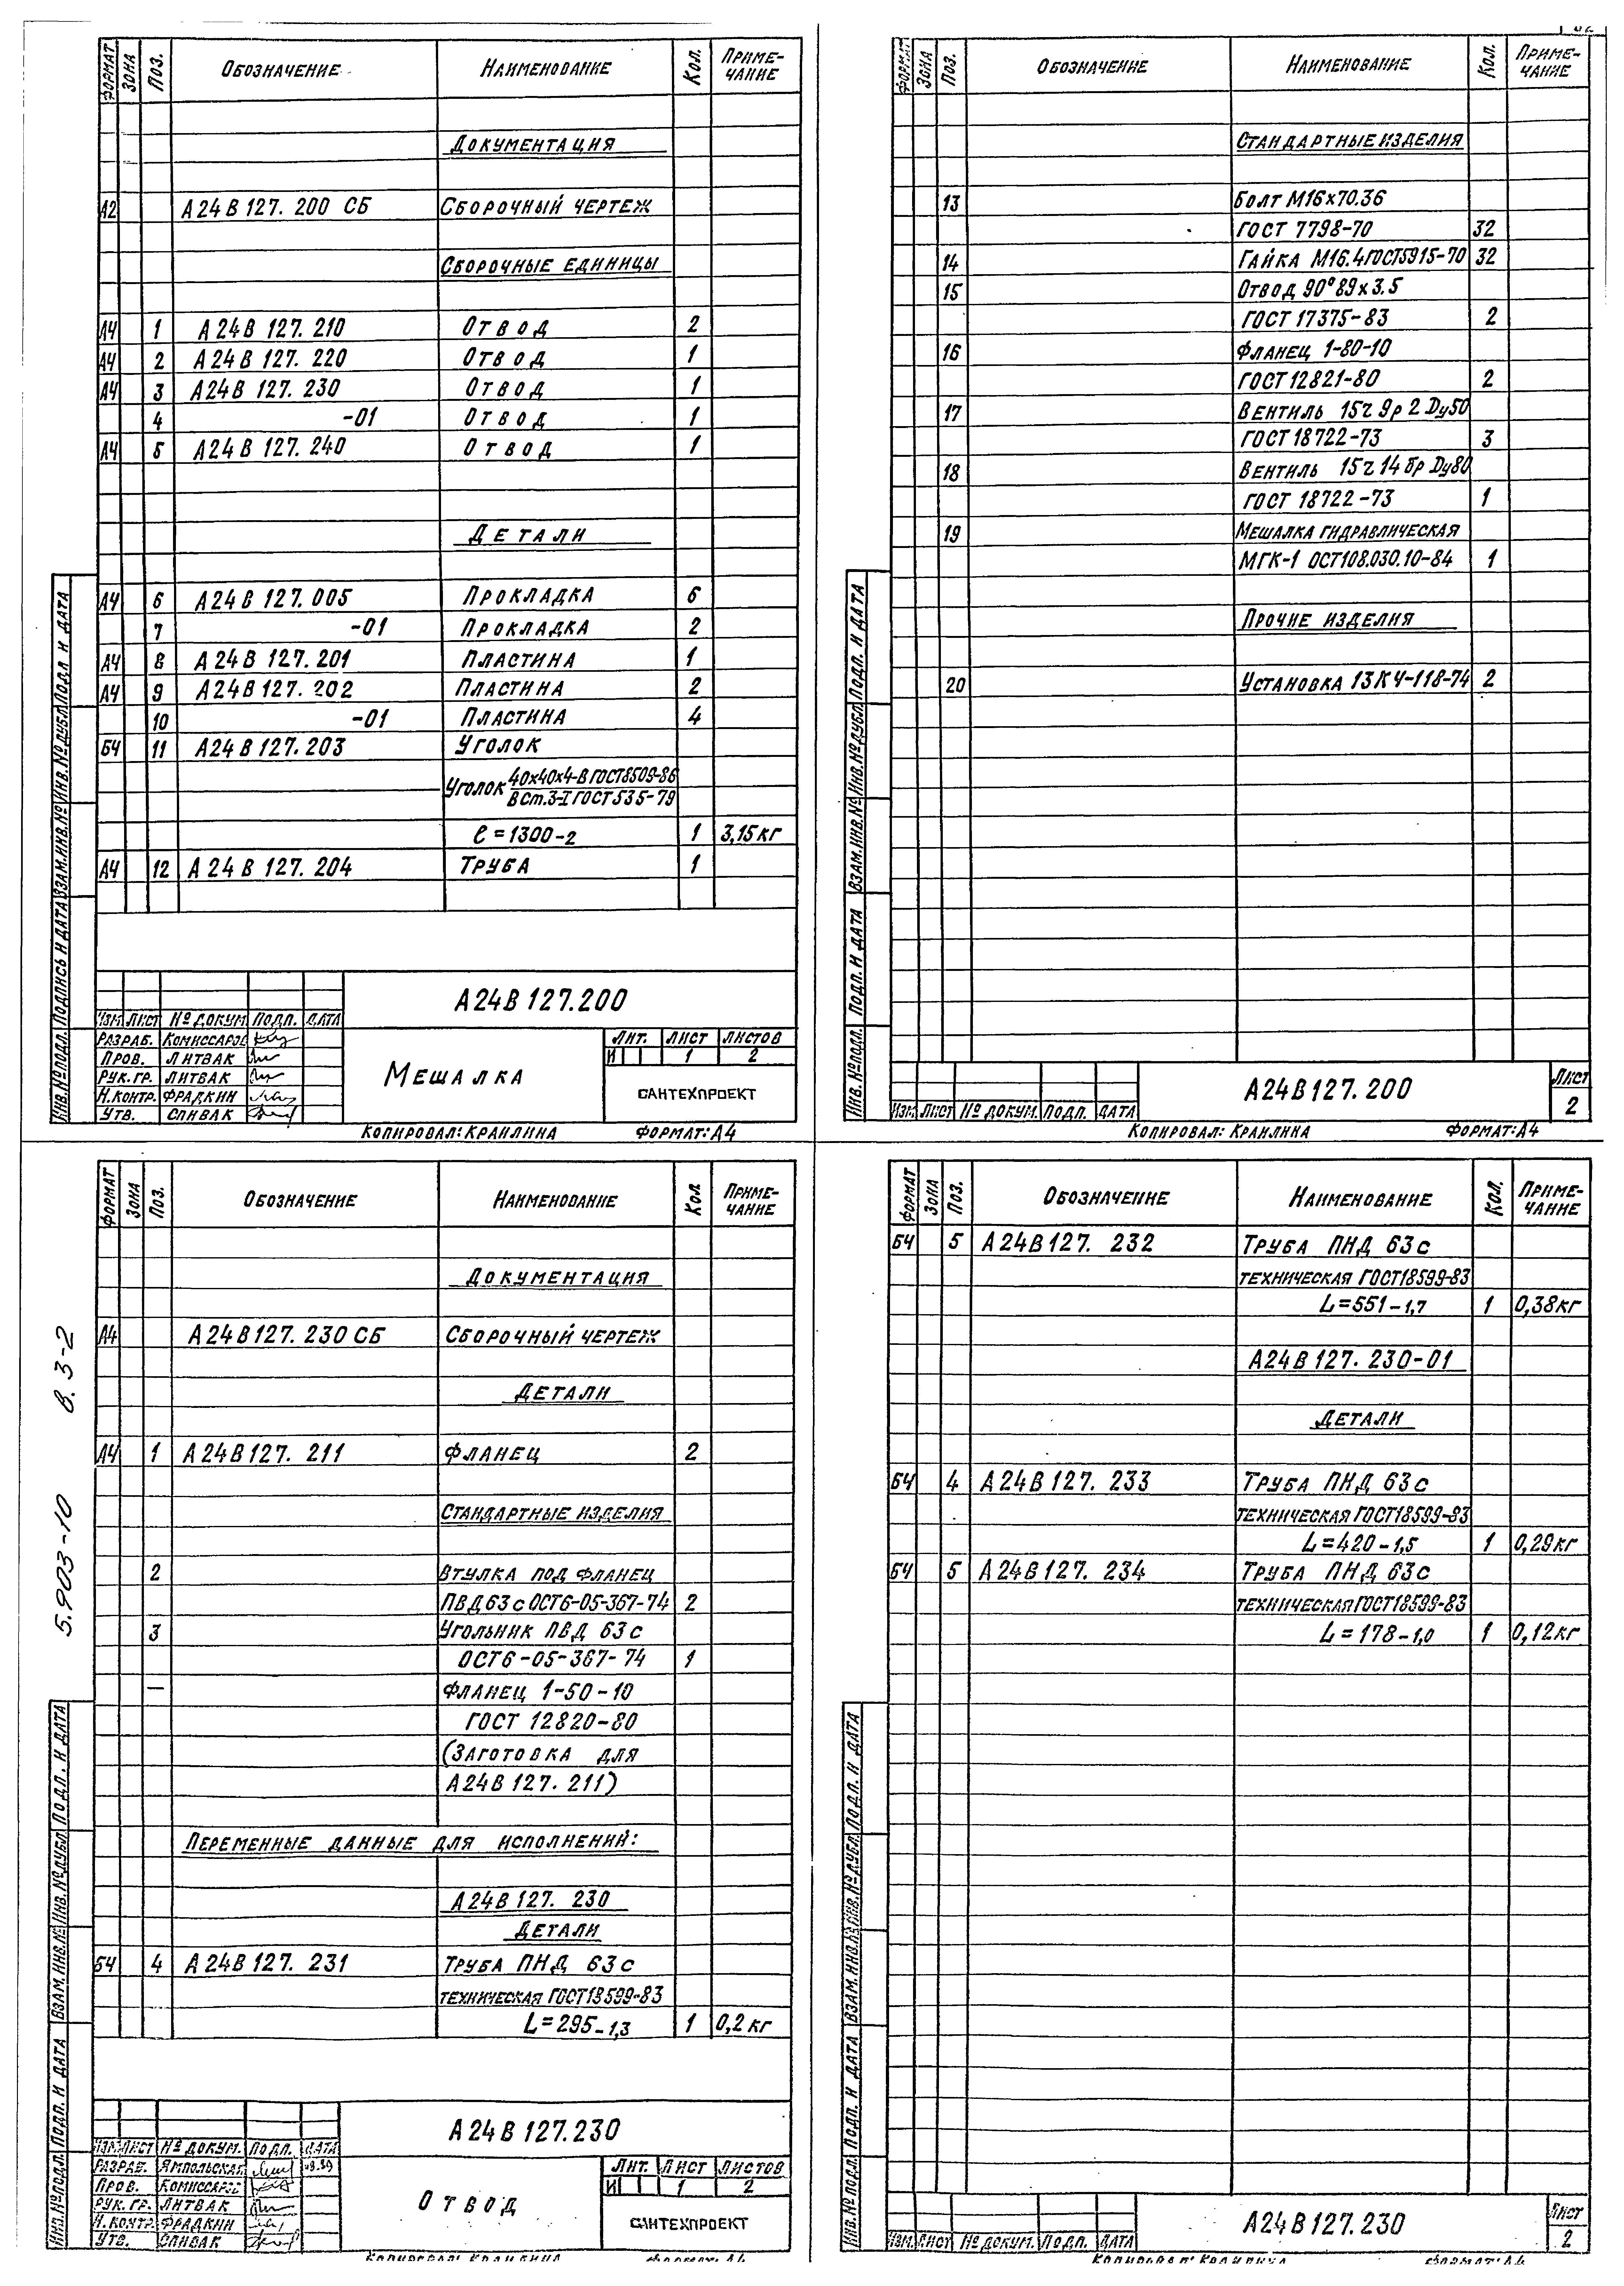 ФОРМАТ ЗОНА ПОЗ. ОБОЗНАЧЕНИЕ НАИМЕНОВАНИЕ КОЛ. ПРИМЕ-ЧАНИЕ
ДОКУМЕНТАЦИЯ
А2 А24В127.200 СБ СБОРОЧНЫЙ ЧЕРТЕЖ
СБОРОЧНЫЕ ЕДИНИЦЫ
А4 1 А24В127.210 ОТВОД 2
А4 2 А24В127.220 ОТВОД 1
А4 3 А24В127.230 ОТВОД 1
4 -01 ОТВОД 1
А4 5 А24В127.240 ОТВОД 1
ДЕТАЛИ
А4 6 А24В127.005 ПРОКЛАДКА 6
7 -01 ПРОКЛАДКА 2
А4 8 А24В127.201 ПЛАСТИНА 1
А4 9 А24В127.202 ПЛАСТИНА 2
10 -01 ПЛАСТИНА 4
БЧ 11 А24В127.203 УГОЛОК
УГОЛОК 40х40х4-В ГОСТ8509-86
В Ст.3-I ГОСТ535-79
ℓ=1300-2 1 3,15кг
А4 12 А24В127.204 ТРУБА 1
ИНВ.№ПОДЛ. ПОДПИСЬ И ДАТА ВЗАМ.ИНВ.№ ИНВ.№ДУБЛ. ПОДЛ. И ДАТА
А24В127.200
ИЗМ ЛИСТ № ДОКУМ. ПОДП. ДАТА
РАЗРАБ. КОМИССАРОВ
ПРОВ. ЛИТВАК
РУК.ГР. ЛИТВАК
Н.КОНТР. ФРАДКИН
УТВ. СПИВАК
МЕШАЛКА
ЛИТ. ЛИСТ ЛИСТОВ
И 1 2
САНТЕХПРОЕКТ
КОПИРОВАЛ: КРАИЛИНА ФОРМАТ: А4
ФОРМАТ ЗОНА ПОЗ. ОБОЗНАЧЕНИЕ НАИМЕНОВАНИЕ КОЛ. ПРИМЕ-ЧАНИЕ
СТАНДАРТНЫЕ ИЗДЕЛИЯ
13 БОЛТ М16х70.36
ГОСТ 7798-70 32
14 ГАЙКА М16.4ГОСТ5915-70 32
15 ОТВОД 90°89х3.5
ГОСТ 17375-83 2
16 ФЛАНЕЦ 1-80-10
ГОСТ12821-80 2
17 ВЕНТИЛЬ 15ч 9р 2 Dу50
ГОСТ18722-73 3
18 ВЕНТИЛЬ 15ч 14 бр Dу80
ГОСТ 18722-73 1
19 МЕШАЛКА ГИДРАВЛИЧЕСКАЯ
МГК-1 ОСТ108.030.10-84 1
ПРОЧИЕ ИЗДЕЛИЯ
20 УСТАНОВКА 13КЧ-118-74 2
ИНВ.№ПОДЛ. ПОДП. И ДАТА ВЗАМ.ИНВ.№ ИНВ.№ДУБЛ. ПОДП. И ДАТА
ИЗМ ЛИСТ № ДОКУМ. ПОДП. ДАТА
А24В127.200
ЛИСТ
2
КОПИРОВАЛ: КРАИЛИНА ФОРМАТ: А4
5.903-10 В.3-2
ФОРМАТ ЗОНА ПОЗ. ОБОЗНАЧЕНИЕ НАИМЕНОВАНИЕ КОЛ. ПРИМЕ-ЧАНИЕ
ДОКУМЕНТАЦИЯ
А4 А24В127.230 СБ СБОРОЧНЫЙ ЧЕРТЕЖ
ДЕТАЛИ
А4 1 А24В127.211 ФЛАНЕЦ 2
СТАНДАРТНЫЕ ИЗДЕЛИЯ
2 ВТУЛКА ПОД ФЛАНЕЦ
ПВД63с ОСТ6-05-367-74 2
3 УГОЛЬНИК ПВД 63с
ОСТ6-05-367-74 1
— ФЛАНЕЦ 1-50-10
ГОСТ 12820-80
(ЗАГОТОВКА ДЛЯ
А24В127.211)
ПЕРЕМЕННЫЕ ДАННЫЕ ДЛЯ ИСПОЛНЕНИЙ:
А24В127.230
ДЕТАЛИ
БЧ 4 А24В127.231 ТРУБА ПНД 63с
ТЕХНИЧЕСКАЯ ГОСТ18599-83
L=295-1,3 1 0,2кг
ИНВ.№ПОДЛ. ПОДП. И ДАТА ВЗАМ.ИНВ.№ ИНВ.№ДУБЛ. ПОДП. И ДАТА
А24В127.230
ИЗМ ЛИСТ № ДОКУМ. ПОДП. ДАТА
РАЗРАБ. ЯМПОЛЬСКАЯ
ПРОВ. КОМИССАРОВ
РУК.ГР. ЛИТВАК
Н.КОНТР. ФРАДКИН
УТВ. СПИВАК
ОТВОД
ЛИТ. ЛИСТ ЛИСТОВ
И 1 2
САНТЕХПРОЕКТ
КОПИРОВАЛ: КРАИЛИНА ФОРМАТ: А4
ФОРМАТ ЗОНА ПОЗ. ОБОЗНАЧЕНИЕ НАИМЕНОВАНИЕ КОЛ. ПРИМЕ-ЧАНИЕ
БЧ 5 А24В127.232 ТРУБА ПНД 63с
ТЕХНИЧЕСКАЯ ГОСТ18599-83
L=551-1,7 1 0,38кг
А24В127.230-01
ДЕТАЛИ
БЧ 4 А24В127.233 ТРУБА ПНД 63с
ТЕХНИЧЕСКАЯ ГОСТ18599-83
L=420-1,5 1 0,29кг
БЧ 5 А24В127.234 ТРУБА ПНД 63с
ТЕХНИЧЕСКАЯ ГОСТ18599-83
L=178-1,0 1 0,12кг
ИНВ.№ПОДЛ. ПОДП. И ДАТА ВЗАМ.ИНВ.№ ИНВ.№ДУБЛ. ПОДП. И ДАТА
ИЗМ ЛИСТ № ДОКУМ. ПОДП. ДАТА
А24В127.230
ЛИСТ
2
КОПИРОВАЛ: КРАИЛИНА ФОРМАТ: А4